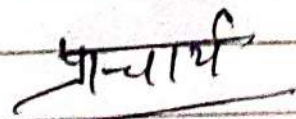 प्राचार्य